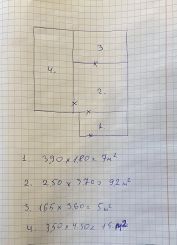 3
4.
2.
1
1. 390 x 180 = 7 m²
2. 250 x 370 = 92 m²
3. 165 x 360 = 5 m²
4. 350 x 430 = 15 m2